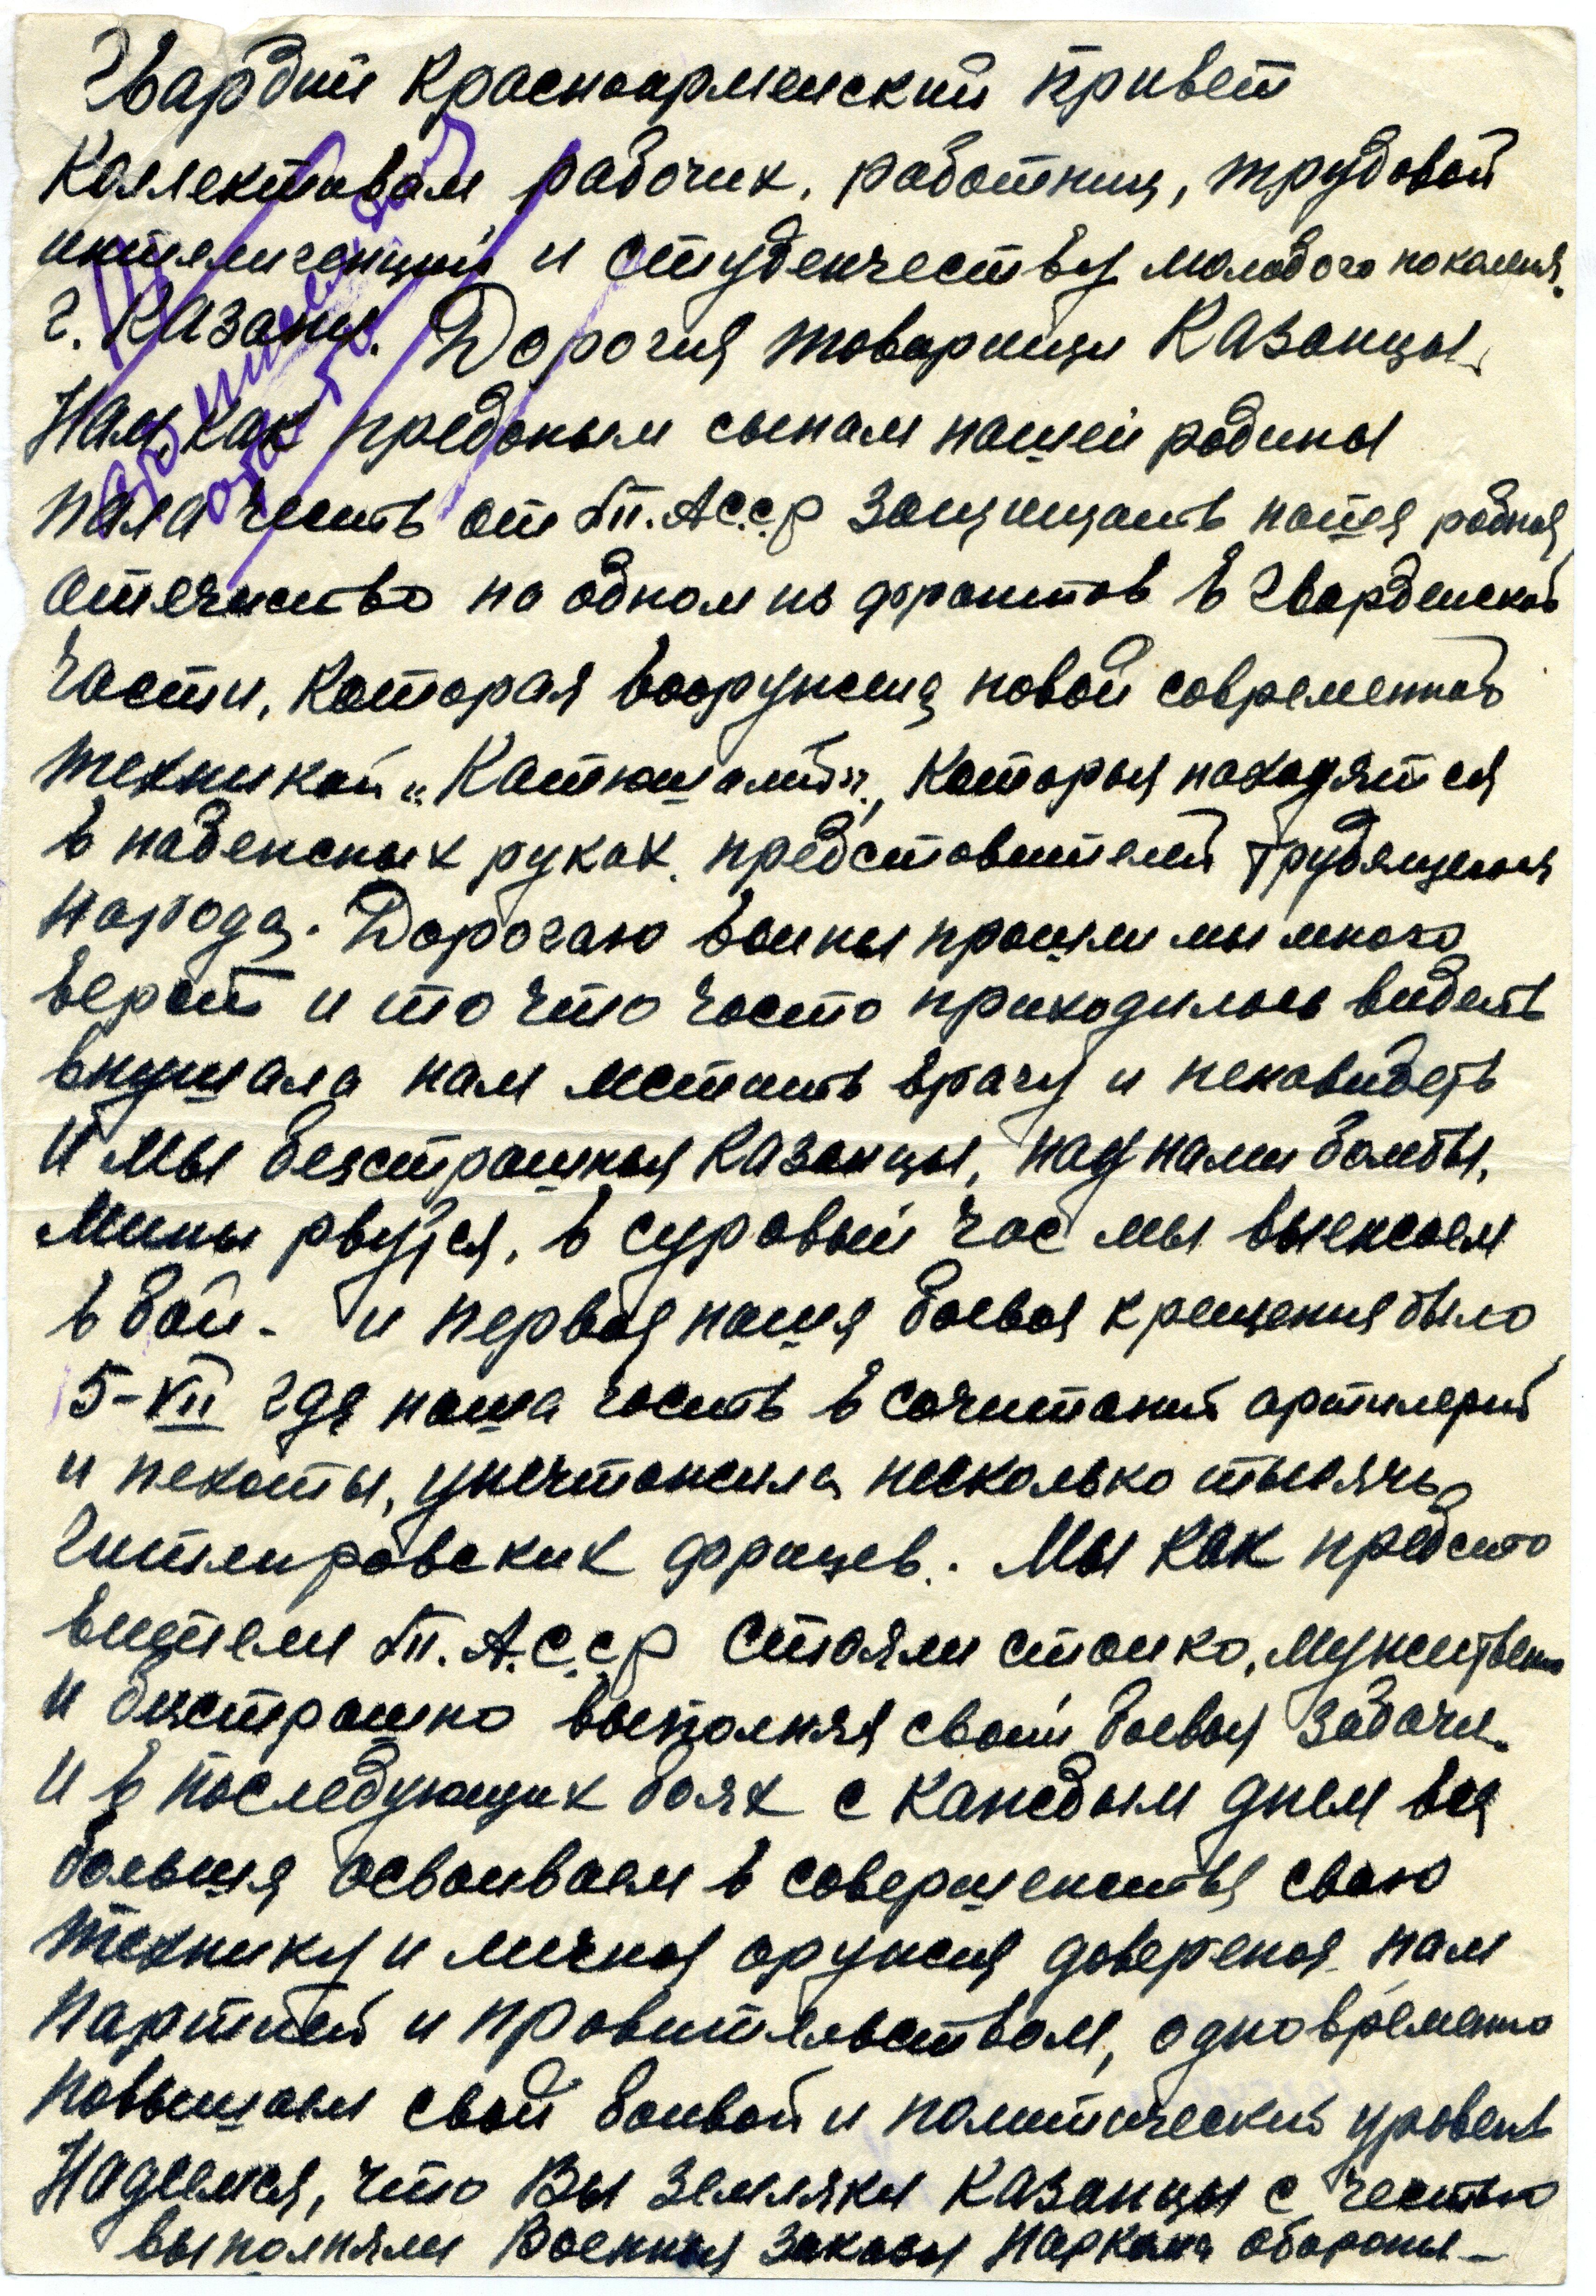 Гвардии красноармейский привет
Коллективам рабочих, работниц, трудовой
интелигенций и студенчеству молодого поколения
г. Казани. Дорогия товарищи Казанцы.
Нам, как преданым сынам нашей родины
пала честь от Т.А.С.С.Р защищать нашя родная
отечиство на одном из фронтов в Гвардейской
части, которая вооружена новой современной
техникой „Катюшами", которыя находятся
в надежных руках представителей трудящегося
народа. Дорогаю войны прошли мы много
верст и то что часто приходилось видеть
внушала нам мстить врагу и ненавидеть
и мы безстрашныя Казанцы, над нами бомбы,
Мины рвутся, в суровый час мы выежаем
в бой - и первая нашя боевоя крещения было
5-VII где наша часть в сочитаний артилерий
и пехоты, уничтожила несколько тысячь
гитлировских фрицев. Мы как предста
вители Т.А.С.С.Р стояли стойко, мужествено
и бистрашно выполняя свои боевыя задачи.
И в последующих боях с каждым днем вся
больше осваиваем в совершенства свою
технику и личноя оружия доверенноя нам
Партией и правительством, одновременно
повышаем свой боивой и политический уровень
Надеемся, что Вы земляки Казанцы с честью
выполняли Военныя заказы Наркома обороны -